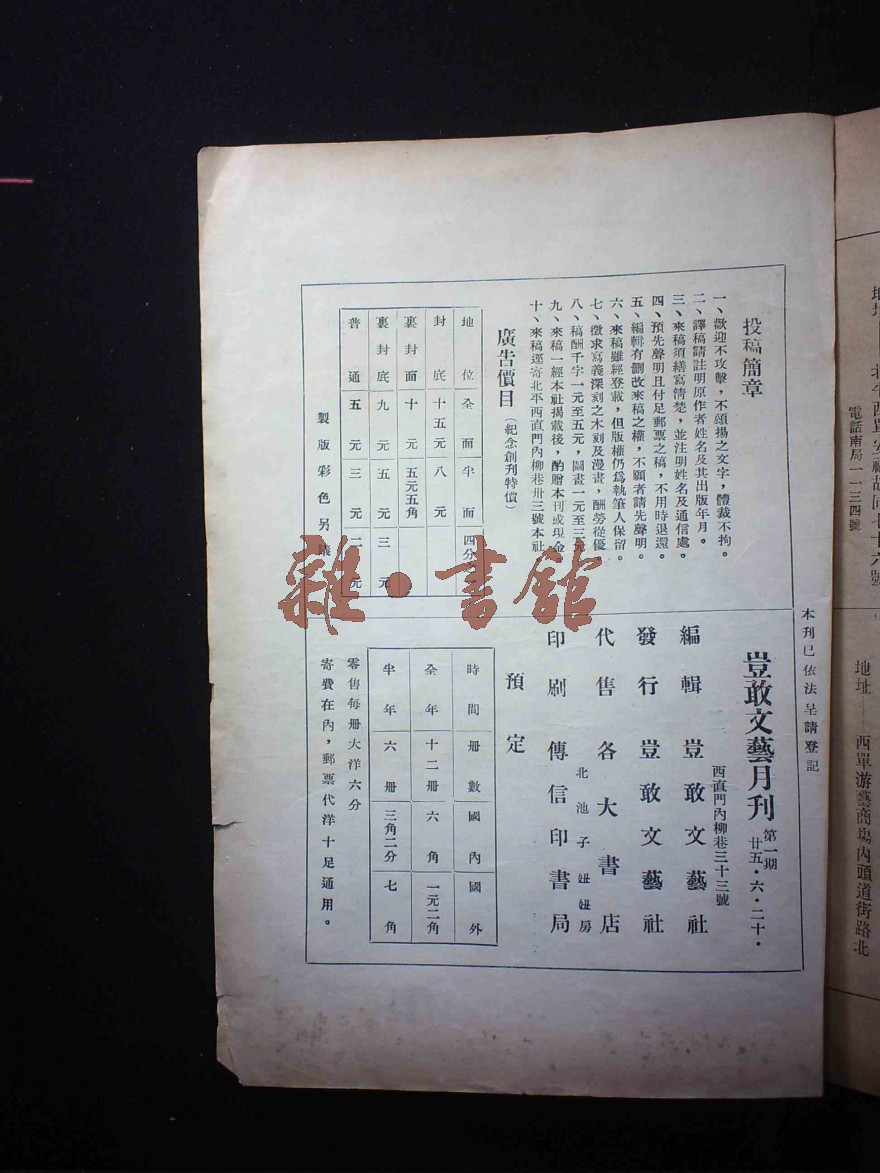 地址
北平西單安福胡同七十六號
電話南局一一三四號
地址
西單游藝商場內頭道街路北
本刊已依法呈請登記
投稿簡章
一、歡迎不攻擊，不頌揚之文字，體裁不拘。
二、譯稿請註明原作者姓名及其出版年月。
三、來稿須繕寫清楚，並注明姓名及通信處。
四、預先聲明且付足郵票之稿，不用時退還。
五、編輯有刪改來稿之權，不願者請先聲明。
六、來稿雖經登載，但版權仍爲執筆人保留。
七、徵求寫義深刻之木刻及漫畫，酬勞從優。
八、稿酬千字一元至五元，圖畫一元至三元
九、來稿一經本社揭載後，酌贈本刊或現金
十、來稿逕寄北平西直門內柳巷卅三號本社
廣告價目（紀念創刊特價）
地位 全面 半面 四分
封底 十五元 八元
裏封面 十元 五元五角
裏封底 九元 五元 三元
普通 五元 三元 二元
製版彩色另議
豈敢文藝月刊 第一期
廿五·六·二十·
西直門內柳巷三十三號
編輯 豈敢文藝社
發行 豈敢文藝社
代售 各大書店
北池子妞妞房
印刷 傳信印書局
預定
時間 册數 國內 國外
全年 十二册 六角 一元二角
半年 六册 三角二分 七角
零售每册大洋六分
寄費在內，郵票代洋十足通用。
雜·書館